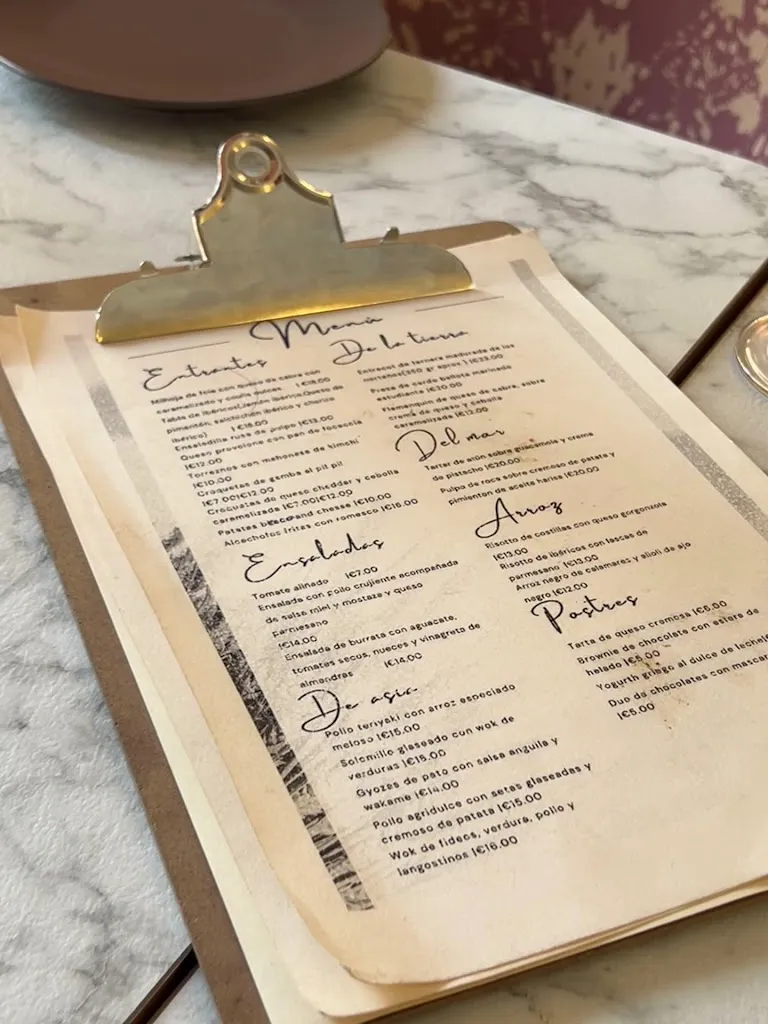 Menú
Entrantes
Milhoja de foie con queso de cabra con
caramelizado y coulis dulces |€18.00
Tabla de ibéricos(Jamón ibérico,Queso de
pimentón, salchichón ibérico y chorizo
ibérico) |€18.00
Ensaladilla rusa de pulpo |€13.00
Queso provolone con pan de focaccia
|€12.00
Torreznos con mahonesa de kimchi
|€10.00
Croquetas de gamba al pil pil
|€7.00|€12.00
Croquetas de queso cheddar y cebolla
caramelizada |€7.00|€12.00
Patatas bacon and chesse |€10.00
Alcachofas fritas con romesco |€16.00
Ensaladas
Tomate aliñado |€7.00
Ensalada con pollo crujiente acompañada
de salsa miel y mostaza y queso
parmesano
|€14.00
Ensalada de burrata con aguacate,
tomates secos, nueces y vinagreta de
almendras |€14.00
De asia
Pollo teriyaki con arroz especiado
meloso |€15.00
Solomillo glaseado con wok de
verduras |€15.00
Gyozas de pato con salsa anguila y
wakame |€14.00
Pollo agridulce con setas glaseadas y
cremoso de patata |€15.00
Wok de fideos, verdura, pollo y
langostinos |€16.00
De la tierra
Entrecot de ternera madurada de los
norteños(350 gr aprox.) |€23.00
Presa de cerdo bellota marinado
estudiante |€20.00
Flamenquin de queso de cabra, sobre
crema de queso y cebolla
caramelizada |€12.00
Del mar
Tartar de atún sobre guacamole y crema
de pistacho |€20.00
Pulpo de roca sobre cremoso de patata y
pimienton de aceite harisa |€20.00
Arroz
Risotto de costillas con queso gorgonzola
|€13.00
Risotto de ibéricos con lascas de
parmesano |€13.00
Arroz negro de calamares y alioli de ajo
negro |€12.00
Postres
Tarta de queso cremosa |€6.00
Brownie de chocolate con esfera de
helado |€5.00
Yogurth griego al dulce de leche
Duo de chocolates con
|€5.00